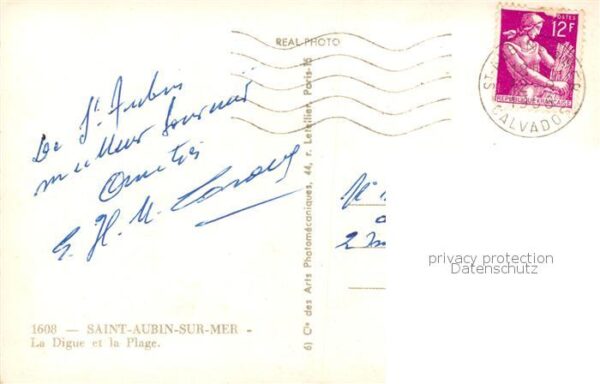 REAL PHOTO
POSTES
12F
REPUBLIQUE FRANCAISE
CALVADOS
De St Aubin
meilleur souvenir
Amitiés
6) Cie des Arts Photomécaniques, 44, r. Letellier, Paris-15
2
privacy protection
Datenschutz
1608 — SAINT-AUBIN-SUR-MER -
La Digue et la Plage.